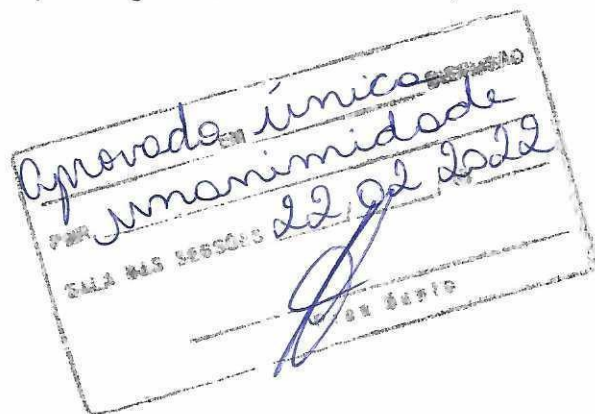 Aprovado EM única DISCUSSÃO
POR unanimidade
SALA DAS SESSÕES 22/02/2022